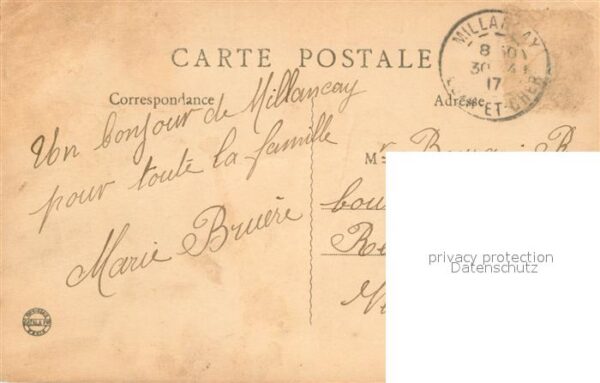 CARTE POSTALE
MILLANÇAY
8
30
17
ET-CHER
Correspondance
Adresse
Un bonjour de Millancay
pour toute la famille
Marie Bruère
M
privacy protection
Datenschutz